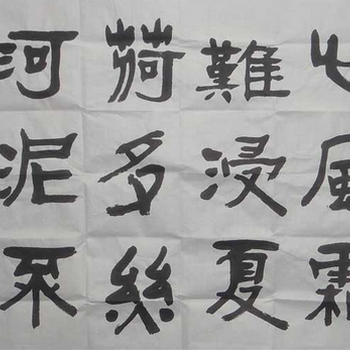 心風霜
難浸夏
荷多絲
河泥不